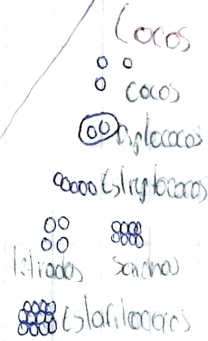 Cocos
cocos
Diplococos
Estreptococos
Tétradas Sarcinas
Estafilococos